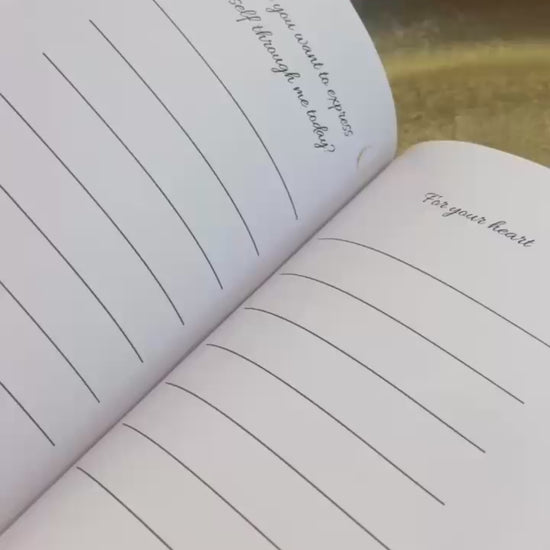 you want to express
self through me today?
For your heart